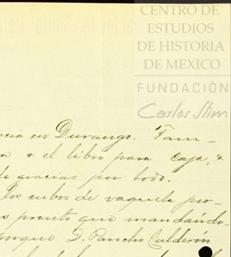 CENTRO DE
ESTUDIOS
DE HISTORIA
DE MEXICO
FUNDACIÓN
Carlos Slim
en Durango. Fam-
a & el libro para caja, &
gracias por todo.
los cubos de vaqueta pro-
pronto que mandando-
porque D. Pancho Calderón